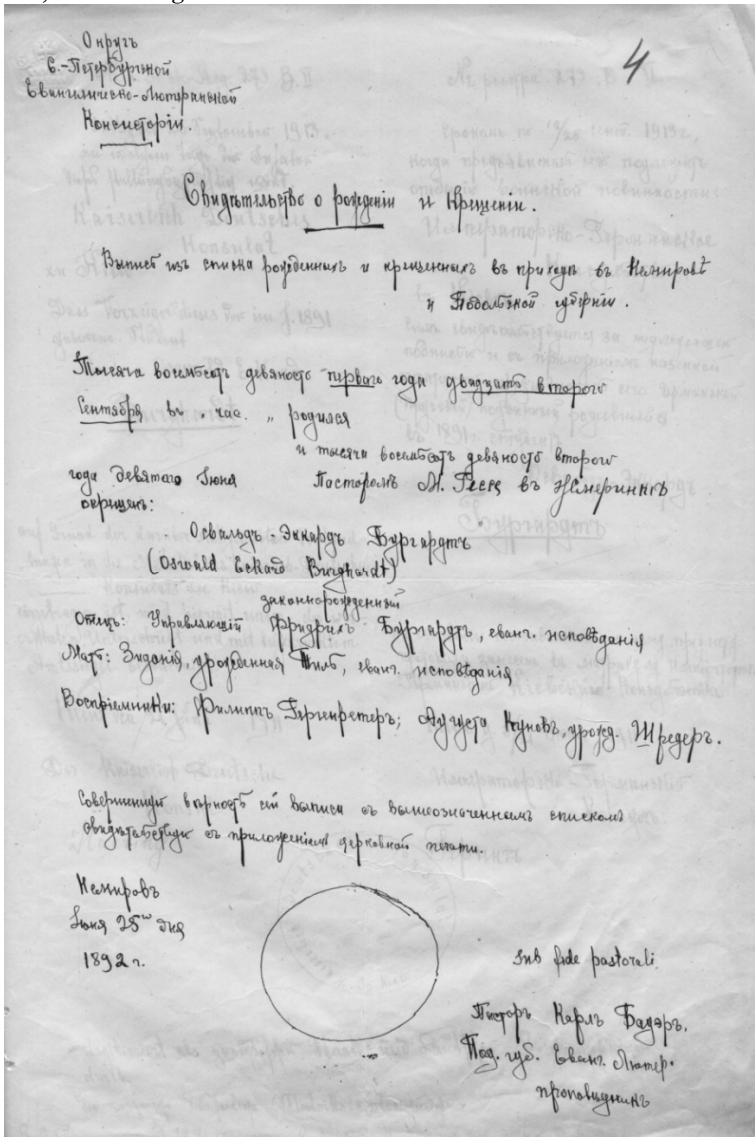 4
Округъ
С.-Петербургской
Евангелическо-Лютеранской
Консисторіи.
Свидѣтельство о рожденіи и крещеніи.
Выписъ изъ списка рожденныхъ и крещенныхъ въ приходѣ въ Немировѣ
и Подольской губерніи.
Тысяча восемьсотъ девяносто перваго года двадцать второго
Сентября въ „ час. „ родился
и тысяча восемьсотъ девяносто второго
года девятаго Іюня Пасторомъ въ Жмеринкѣ
окрещенъ:
Освальдъ-Эккардъ Бургардтъ
(Oswald Eckard Burghardt)
законнорожденный
Отецъ: Управляющій Фридрихъ Бургардтъ, еванг. исповѣданія
Мать: Зидонія, урожденная Тиль, еванг. исповѣданія
Воспріемники: Филиппъ Гергенретеръ; Аугуста Куновъ, урожд. Шредеръ.
Совершенную вѣрность сей выписи съ вышеозначеннымъ спискомъ
свидѣтельствую съ приложеніемъ церковной печати.
Немировъ
Іюня 25го дня
1892 г.
sub fide pastorali.
Пасторъ Карлъ Бадэръ.
Под. губ. Еванг. Лютер.
проповѣдникъ